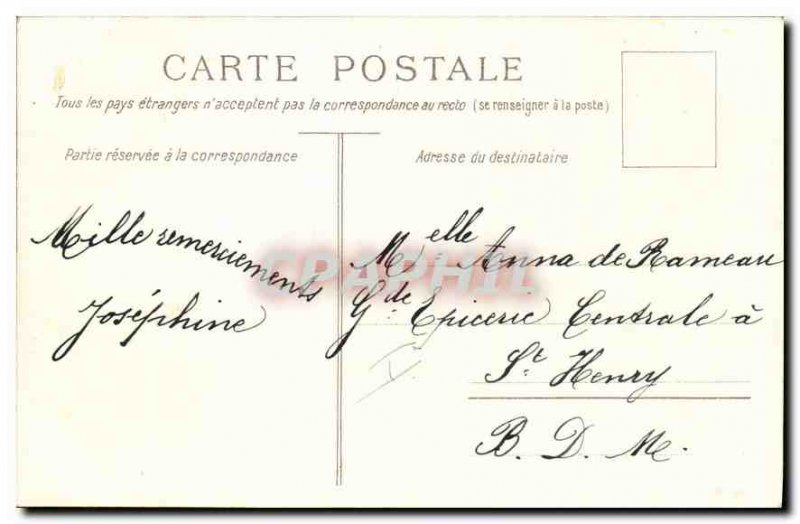 CARTE POSTALE
Tous les pays étrangers n'acceptent pas la correspondance au recto (se renseigner à la poste)
Partie réservée à la correspondance
Adresse du destinataire
Mille remerciements
Joséphine
Melle Anna de Rameau
Gde Epicerie Centrale à
St Henry
B. D. M.
CPAPHIL